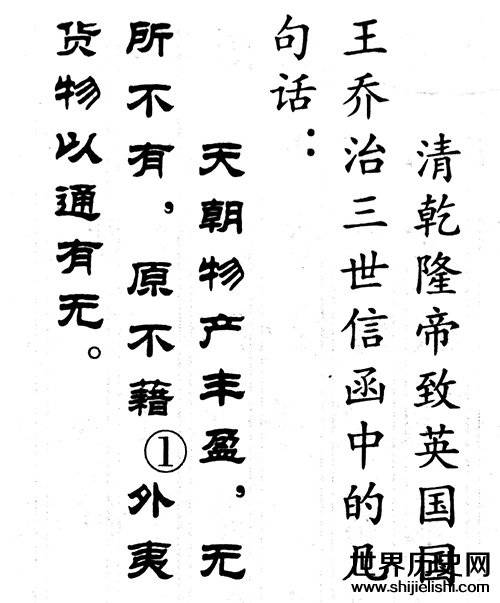 清乾隆帝致英国国
王乔治三世信函中的几
句话：
天朝物产丰盈，无
所不有，原不藉①外夷
货物以通有无。
世界历史网
www.shijielishi.com